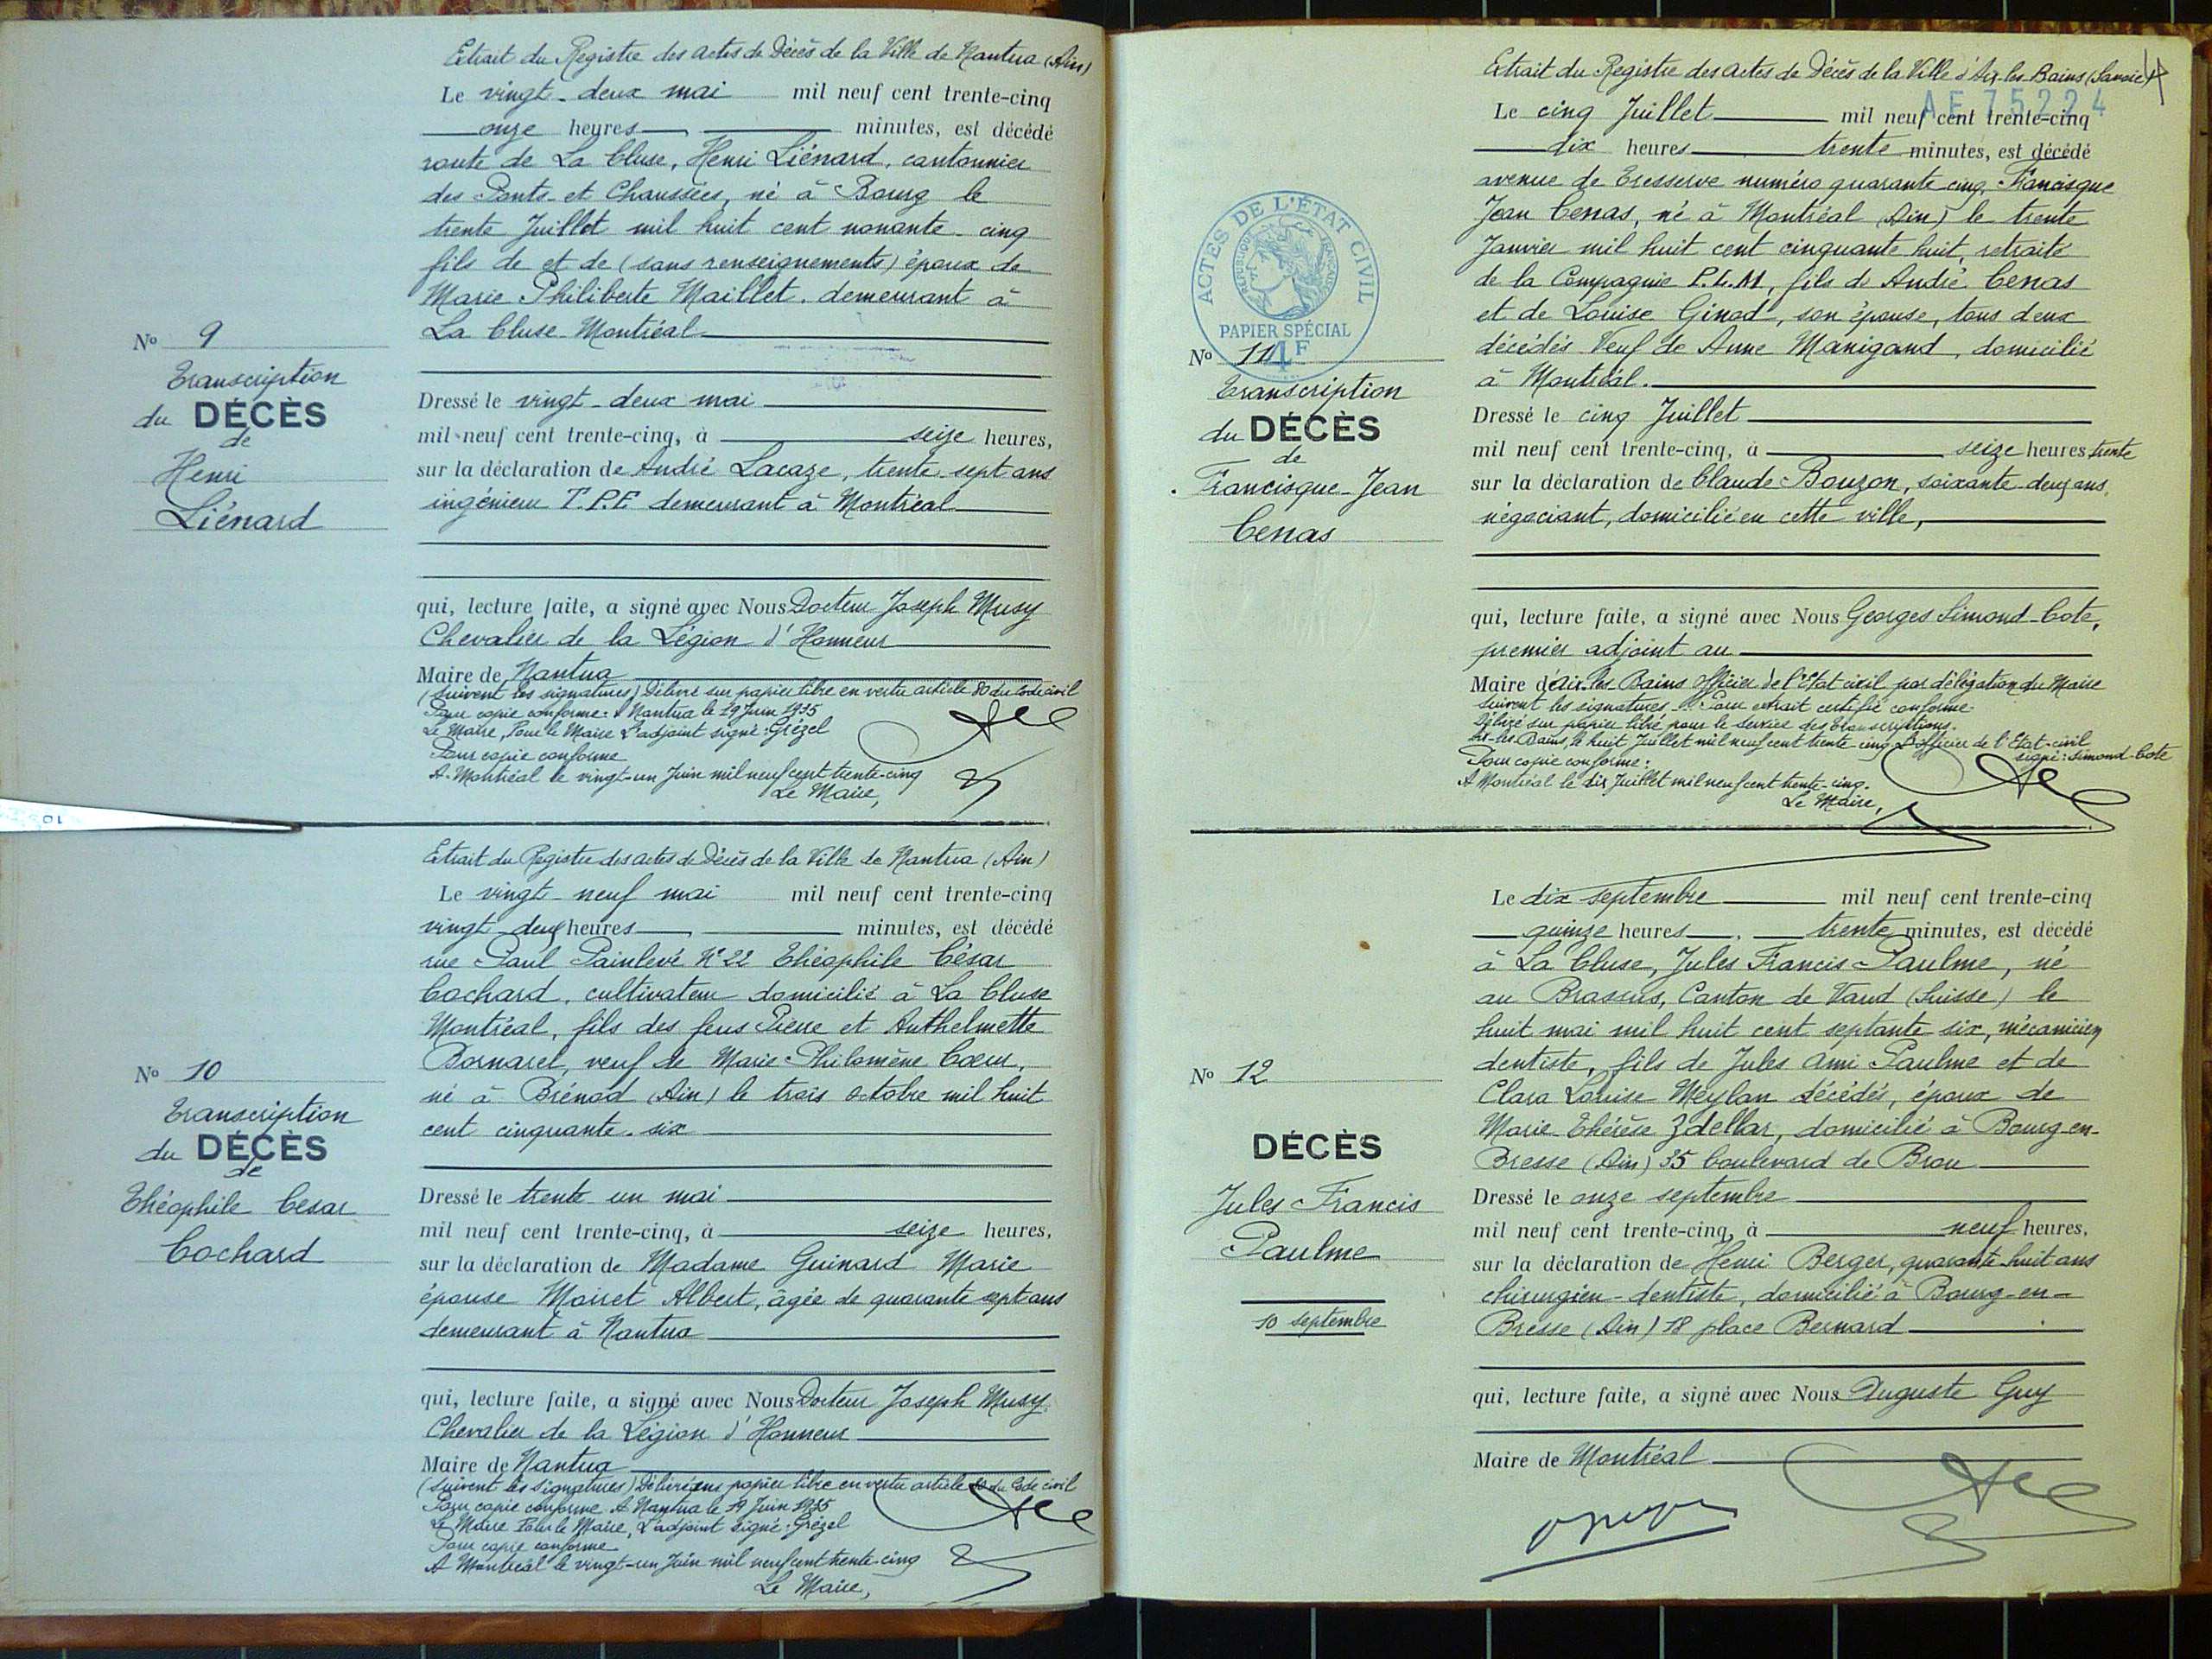 Extrait du Registre des actes de Décès de la Ville de Nantua (Ain)
Le vingt-deux mai mil neuf cent trente-cinq
onze heures minutes, est décédé
route de La Cluse, Henri Liénard, cantonnier
des Ponts et Chaussées, né à Bourg le
trente Juillet mil huit cent nonante-cinq
fils de et de (sans renseignements) époux de
Marie Philiberte Maillet. demeurant à
La Cluse Montréal
Nº 9
Transcription
du DÉCÈS
de
Henri
Liénard
Dressé le vingt-deux mai
mil neuf cent trente-cinq, à seize heures,
sur la déclaration de André Lacaze, trente-sept ans
ingénieur T.P.E demeurant à Montréal
qui, lecture faite, a signé avec Nous Docteur Joseph Musy
Chevalier de la Légion d'Honneur
Maire de Nantua
(Suivent les signatures) Délivré sur papier libre en vertu article 80 du Code civil
Pour copie conforme: A Nantua le 19 Juin 1935
Le Maire, Pour le Maire L'adjoint signé: Grézel
Pour copie conforme
A Montréal le vingt-un Juin mil neuf cent trente-cinq
Le Maire,
Extrait du Registre des actes de Décès de la Ville de Nantua (Ain)
Le vingt-neuf mai mil neuf cent trente-cinq
vingt-deux heures minutes, est décédé
rue Paul Painlevé Nº 22 Théophile César
Cochard, cultivateur domicilié à La Cluse
Montréal, fils des feus Pierre et Anthelmette
Bornarel, veuf de Marie Philomène Cœur,
né à Brénod (Ain) le trois octobre mil huit
cent cinquante-six
Nº 10
Transcription
du DÉCÈS
de
Théophile César
Cochard
Dressé le trente un mai
mil neuf cent trente-cinq, à seize heures,
sur la déclaration de Madame Guinard Marie
épouse Moiret Albert, âgée de quarante sept ans
demeurant à Nantua
qui, lecture faite, a signé avec Nous Docteur Joseph Musy
Chevalier de la Légion d'Honneur
Maire de Nantua
(Suivent les signatures) Délivré sur papier libre en vertu article 80 du Code civil
Pour copie conforme A Nantua le 19 Juin 1935
Le Maire Pour le Maire, L'adjoint signé: Grézel
Pour copie conforme
A Montréal le vingt-un Juin mil neuf cent trente-cinq
Le Maire,
Extrait du Registre des actes de Décès de la Ville d'Aix-les-Bains (Savoie)
AE 75224
Le cinq Juillet mil neuf cent trente-cinq
dix heures trente minutes, est décédé
avenue de Tresserve numéro quarante cinq, Francisque
Jean Cenas, né à Montréal (Ain) le trente
Janvier mil huit cent cinquante huit, retraité
de la Compagnie P.L.M, fils de André Cenas
et de Louise Ginod, son épouse, tous deux
décédés Veuf de Anne Manigand, domicilié
à Montréal.
ACTES DE L'ÉTAT CIVIL
RÉPUBLIQUE FRANÇAISE
PAPIER SPÉCIAL
4F
Nº 11
Transcription
du DÉCÈS
de
Francisque-Jean
Cenas
Dressé le cinq Juillet
mil neuf cent trente-cinq, à seize heures trente
sur la déclaration de Claude Bouzon, soixante-deux ans,
négociant, domicilié en cette ville,
qui, lecture faite, a signé avec Nous Georges Simond-Cote,
premier adjoint au
Maire d'Aix-les-Bains Officier de l'Etat civil par délégation du Maire
Suivent les signatures Pour extrait certifié conforme
Délivré sur papier libre pour le service des transcriptions.
Aix-les-Bains, le huit Juillet mil neuf cent trente-cinq L'officier de l'Etat-civil
signé: Simond-Cote
Pour copie conforme:
A Montréal le dix Juillet mil neuf cent trente-cinq.
Le Maire,
Le dix septembre mil neuf cent trente-cinq
quinze heures trente minutes, est décédé
à La Cluse, Jules Francis Paulme, né
au Brassus, Canton de Vaud (Suisse) le
huit mai mil huit cent septante six, mécanicien
dentiste, fils de Jules Ami Paulme et de
Clara Louise Meylan décédés, époux de
Marie Thérèse Zdellar, domicilié à Bourg-en-
Bresse (Ain) 35 boulevard de Brou
Nº 12
DÉCÈS
Jules Francis
Paulme
10 septembre
Dressé le onze septembre
mil neuf cent trente-cinq, à neuf heures,
sur la déclaration de Henri Berger, quarante-huit ans
chirurgien-dentiste, domicilié à Bourg-en-
Bresse (Ain) 18 place Bernard
qui, lecture faite, a signé avec Nous Auguste Guy
Maire de Montréal